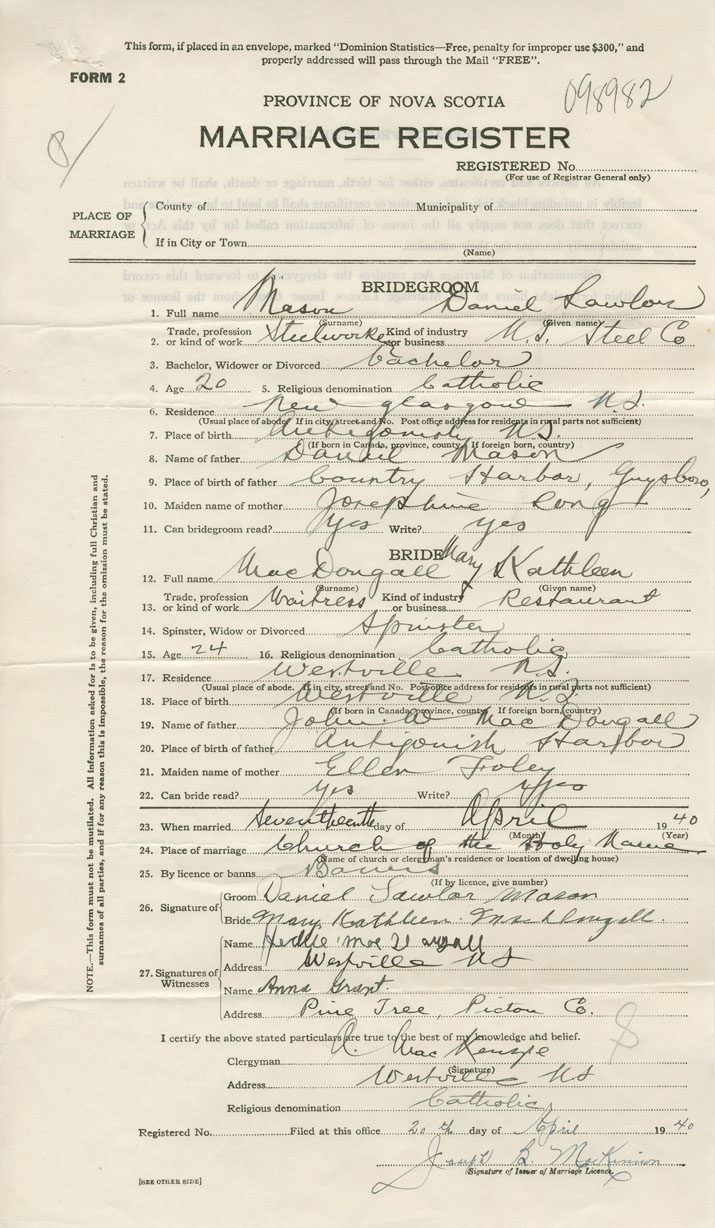 This form, if placed in an envelope, marked "Dominion Statistics—Free, penalty for improper use $300," and
properly addressed will pass through the Mail "FREE".
FORM 2
098982
PROVINCE OF NOVA SCOTIA
MARRIAGE REGISTER
REGISTERED No.
(For use of Registrar General only)
PLACE OF MARRIAGE
County of Municipality of
If in City or Town
(Name)
BRIDEGROOM
1. Full name Mason Daniel Lawlor
(Surname) (Given name)
2. Trade, profession or kind of work Steelworker Kind of industry or business N.S. Steel Co
3. Bachelor, Widower or Divorced Bachelor
4. Age 20 5. Religious denomination Catholic
6. Residence New Glasgow N.S.
(Usual place of abode. If in city, street and No. Post office address for residents in rural parts not sufficient)
7. Place of birth Antigonish N.S.
(If born in Canada, province, county. If foreign born, country)
8. Name of father Daniel Mason
9. Place of birth of father Country Harbor, Guysboro,
10. Maiden name of mother Josephine Long
11. Can bridegroom read? Yes Write? yes
BRIDE
12. Full name MacDougall Mary Kathleen
(Surname) (Given name)
13. Trade, profession or kind of work Waitress Kind of industry or business Restaurant
14. Spinster, Widow or Divorced Spinster
15. Age 24 16. Religious denomination Catholic
17. Residence Westville N.S.
(Usual place of abode. If in city, street and No. Post office address for residents in rural parts not sufficient)
18. Place of birth Westville N.S.
(If born in Canada, province, county. If foreign born, country)
19. Name of father John W MacDougall
20. Place of birth of father Antigonish Harbor
21. Maiden name of mother Ellen Foley
22. Can bride read? yes Write? yes
23. When married Seventeenth day of April 1940
(Month) (Year)
24. Place of marriage Church of the Holy Name
(Name of church or clergyman's residence or location of dwelling house)
25. By licence or banns Banns
(If by licence, give number)
26. Signature of Groom Daniel Lawlor Mason
Bride Mary Kathleen MacDougall
27. Signatures of Witnesses
Name
Address Westville NS
Name Anna Grant
Address Pine Tree, Pictou Co.
I certify the above stated particulars are true to the best of my knowledge and belief.
Clergyman A. MacKenzie
(Signature)
Address Westville NS
Religious denomination Catholic
Registered No. Filed at this office 20th day of April 1940
Joseph B. MacKinnon
Signature of Issuer of Marriage Licence.
[SEE OTHER SIDE]
NOTE.—This form must not be mutilated. All information asked for is to be given, including full Christian and
surnames of all parties, and if for any reason this is impossible, the reason for the omission must be stated.